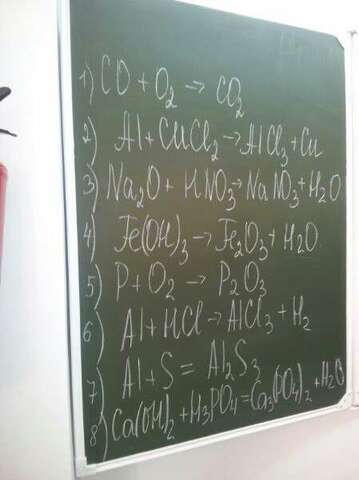 1) CO + O₂ → CO₂
2) Al + CuCl₂ → AlCl₃ + Cu
3) Na₂O + HNO₃ → NaNO₃ + H₂O
4) Fe(OH)₃ → Fe₂O₃ + H₂O
5) P + O₂ → P₂O₃
6) Al + HCl → AlCl₃ + H₂
7) Al + S = Al₂S₃
8) Ca(OH)₂ + H₃PO₄ = Ca₃(PO₄)₂ + H₂O